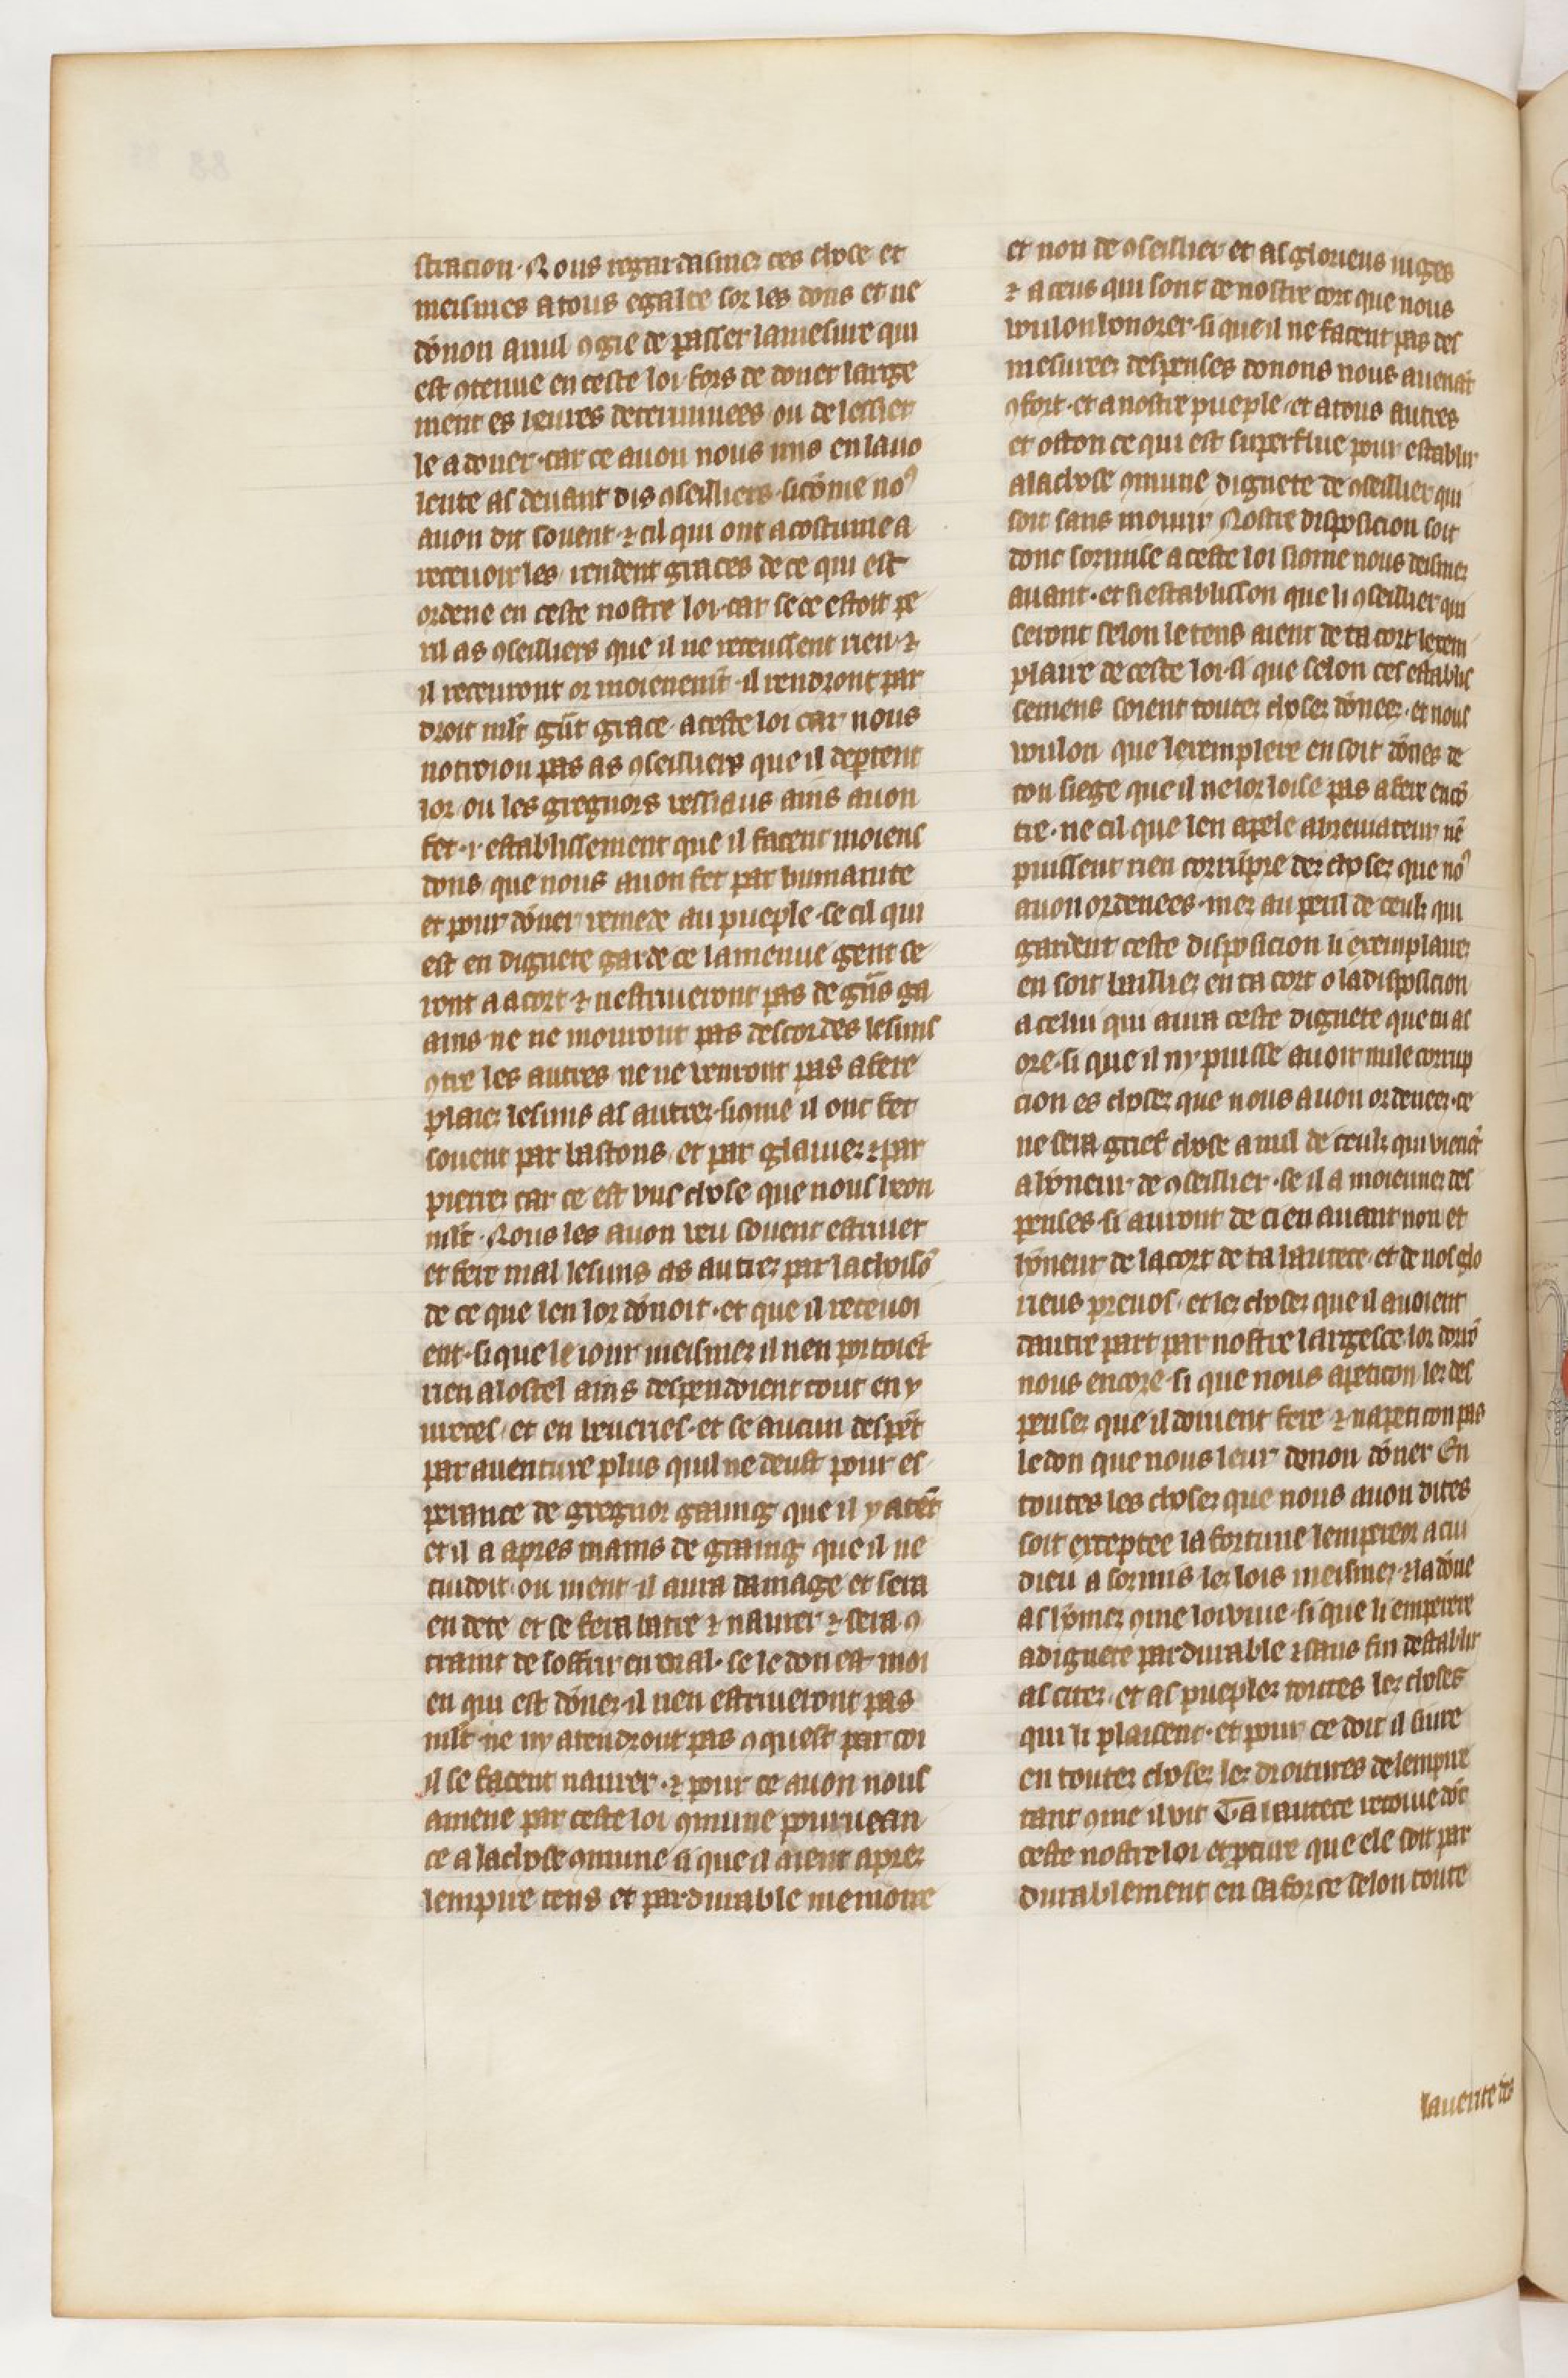 stracion. Nous regardasmez ces chose et
meismes a tous egalte sor les dons et ne
dōnon a nul ꝯgie de passer la mesure qui
est ꝯtenue en ceste loi fors de doner large
ment es leures determinees ou de lessier
le a doner. car ce auon nous mis en la uo
lente as deuant dis ꝯseilliers. sicōme noꝰ
auon dit souent. ⁊ cil qui ont acostume a
receuoir les rendent graces de ce qui est
ordene en ceste nostre loi. car se ce estoit pe
ril as ꝯseilliers que il ne receussent rien. ⁊
il receuront or moienemt̄ il rendront par
droit mlt̄ gr̄t grace a ceste loi car nous
notroion pas as ꝯseilliers que il deptent
lor ou les gregnors vessiaus ains auon
fet .i. establissement que il facent moiens
dons que nous auon fet par humanite
et pour dōner remede au pueple. se cil qui
est en dignete garde ce la menue gent se
ront a acort ⁊ nestriueront pas de grn̄s ga
ains ne ne mouront pas descordes les uns
ꝯtre les autres ne ne venront pas a fere
plaiez les uns as autrez. siꝯme il ont fet
souent par bastons et par glaiuez ⁊ par
pierrez car ce est vne chose que nous heon
mlt̄. Nous les auon veu souent estriuer
et fere mal les uns as autrez par lachoisō
de ce que len lor dōnoit. et que il receuoi
ent. si que le iour meismez il nen portoiēt
rien a lostel ains despendoient tout en y
ureces et en beueries. et se aucun despēt
par auenture plus quil ne deust pour es
perance de gregnor gaaing que il y atēt
et il a apres mains de graing que il ne
cuidoit ou nient il aura damage et sera
en dete et se fera batre ⁊ naurer ⁊ sera ꝯ
traint de soffrir cu vn mal. se le don est moi
en qui est dōnez il nen estriueront pas
mlt̄ ne ny atendront pas ꝯquest par coi
il se facent naurer. ⁊ pour ce auon nous
amene par ceste loi ꝯmune pourueen
ce a la chose ꝯmune si que il aient aprez
lempire tens et pardurable memoire
et non de ꝯseillier et as glorieus iuges
⁊ a ceus qui sont de nostre cort que nous
voulon honorer. si que il ne facent pas des
mesureez despenses donons nous auenāt
ꝯfort. et a nostre pueple et a tous autres
et oston ce qui est superflue pour establir
a la chose ꝯmune dignete de ꝯseillier qui
soit sans mourir Nostre disposicion soit
donc sormise a ceste loi siꝯme nous deismez
auant. et si establisson que li ꝯseillier qui
seront selon le tens aient de ta cort lexem
plaire de ceste loi. si que selon ces establis
semens soient toutez chosez dōneez. et nous
voulon que lexemplere en soit dōnes de
ton siege que il ne lor loise pas a fere encō
tre. ne cil que len apele abreuiateur nē
puissent rien corrūpre dez chosez que noꝰ
auon ordenees. mez au peril de ceulz qui
gardent ceste disposicion li exemplairez
en soit bailliez en ta cort o la disposicion
a celui qui aura ceste dignete que tu as
ore. si que il ny puisse auoir nule corrup
cion es chosez que nous auon ordeneez. ce
ne sera grief chose a nul de ceulz qui vienēt
a honeur de ꝯseillier. se il a moiennez des
penses. si auront de ci en auant non et
honeur de la cort de ta hautece. et de nos glo
rieus preuos. et lez chosez que il auoient
dautre part par nostre largesce lor donō
nous encore. si que nous apeticon lez des
pensez que il doiuent fere ⁊ napeticon pas
le don que nous leur deuon dōner En
toutes les chosez que nous auon dites
soit exceptee la fortune lempereor a cui
dieu a sormis lez lois meismez ⁊ la dōne
as homez ꝯme loi viue. si que li emperere
a dignete pardurable ⁊ sans fin destablir
as citez et as pueplez toutes lez choses
qui li plaisent. et pour ce doit il siure
en toutez chosez lez droitures de lempire
tant ꝯme il vit Ta hautece recoiue dōc
ceste nostre loi et ꝓcure que ele soit par
durablement en sa force selon toute
la uente des